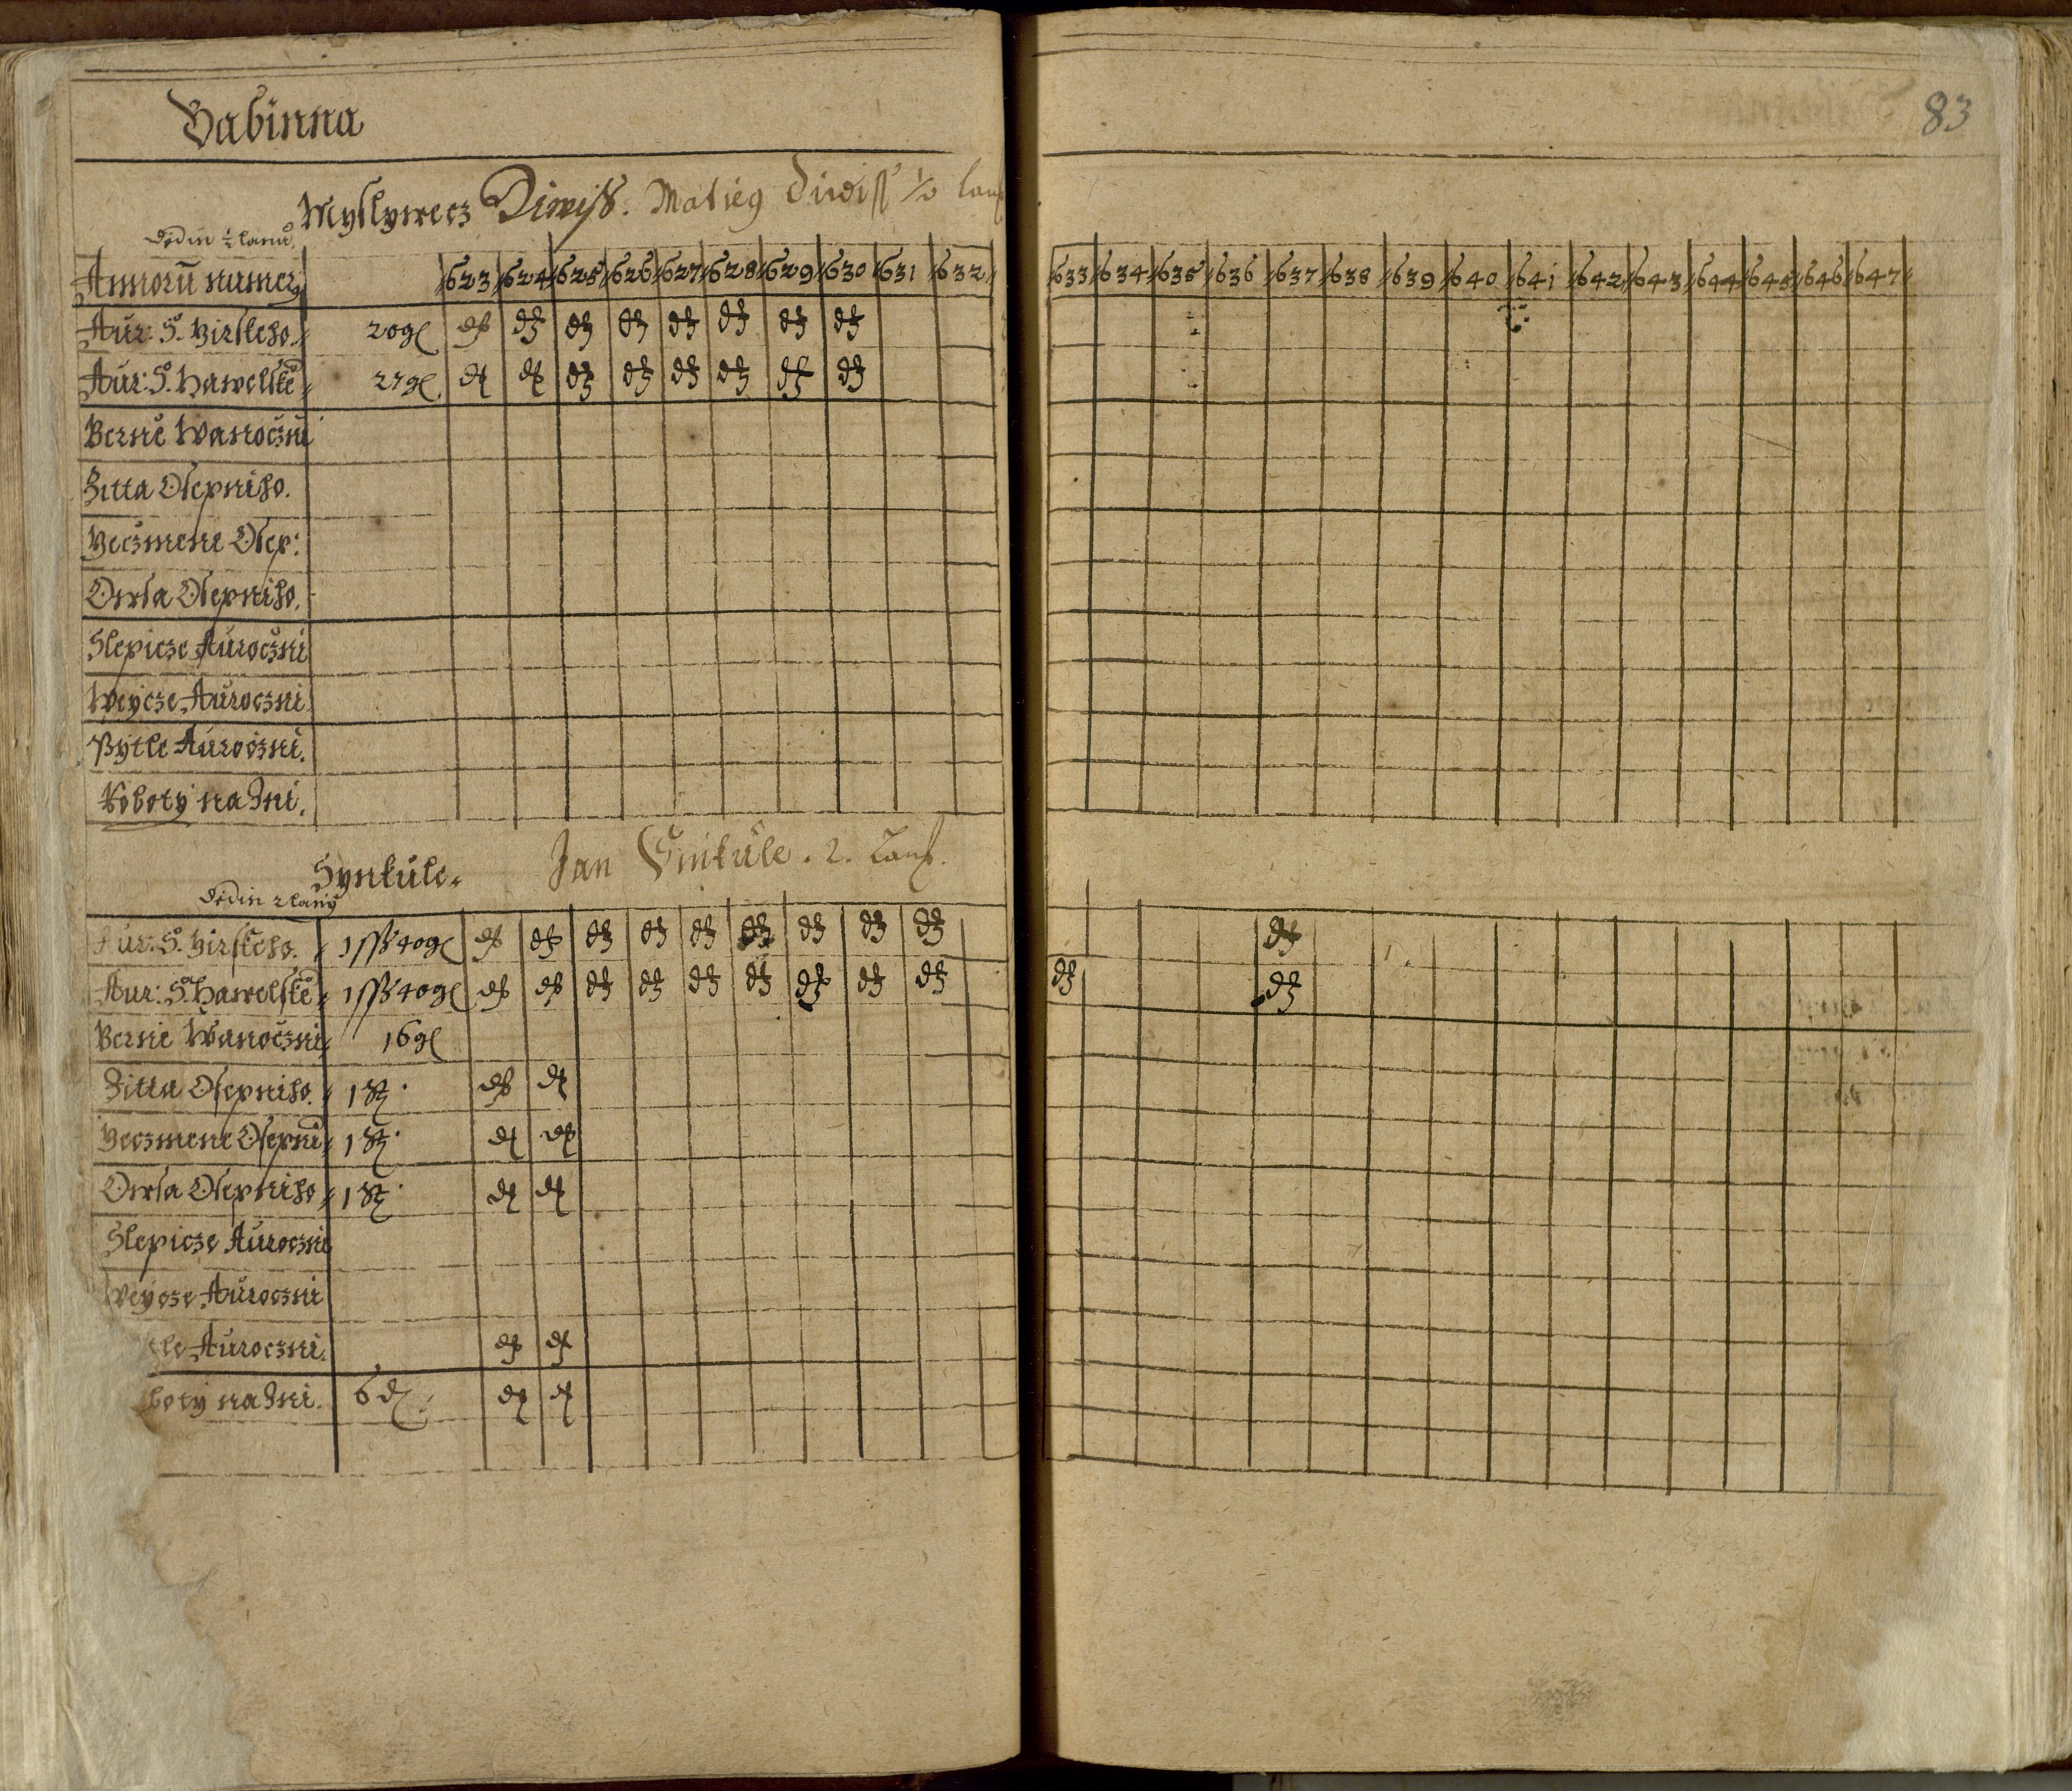 Babinna
83
Myslywecz Diwiss. Matieg Diwiss 1/2 lan
Dědin ½ lanu
Annorũ numer, 1623 1624 1625 1626 1627 1628 1629 1630 1631 1632 1633 1634 1635 1636 1637 1638 1639 1640 1641 1642 1643 1644 1645 1646 1647
Aur: S. Girskeho. 20 g dt dt dt dt dt dt dt dt
Aur: S. Hawelske 27 g dt dt dt dt dt dt dt dt
Berně Wanoczni
Zitta Osepniho.
Geczmene Osep:
Owsa Osepniho.
Slepicze Auroczni
Weycze Auroczni
Pytle Auroczni.
Roboty na dni.
Synkule. Jan Sinkule. 2. Lany.
Dědin 2 lany
Aur: S. Girskeho. 1 ss 40 g dt dt dt dt dt dt dt dt dt dt
Aur: S. Hawelske 1 ss 40 g dt dt dt dt dt dt dt dt dt dt dt
Berně Wanoczni 16 g
Zitta Osepniho. 1 st dt dt
Geczmene Osepni 1 st dt dt
Owsa Osepniho 1 st dt dt
Slepicze Auroczni
Weycze Auroczni
tle Auroczni. dt dt
boty na dni. 6 d dt dt